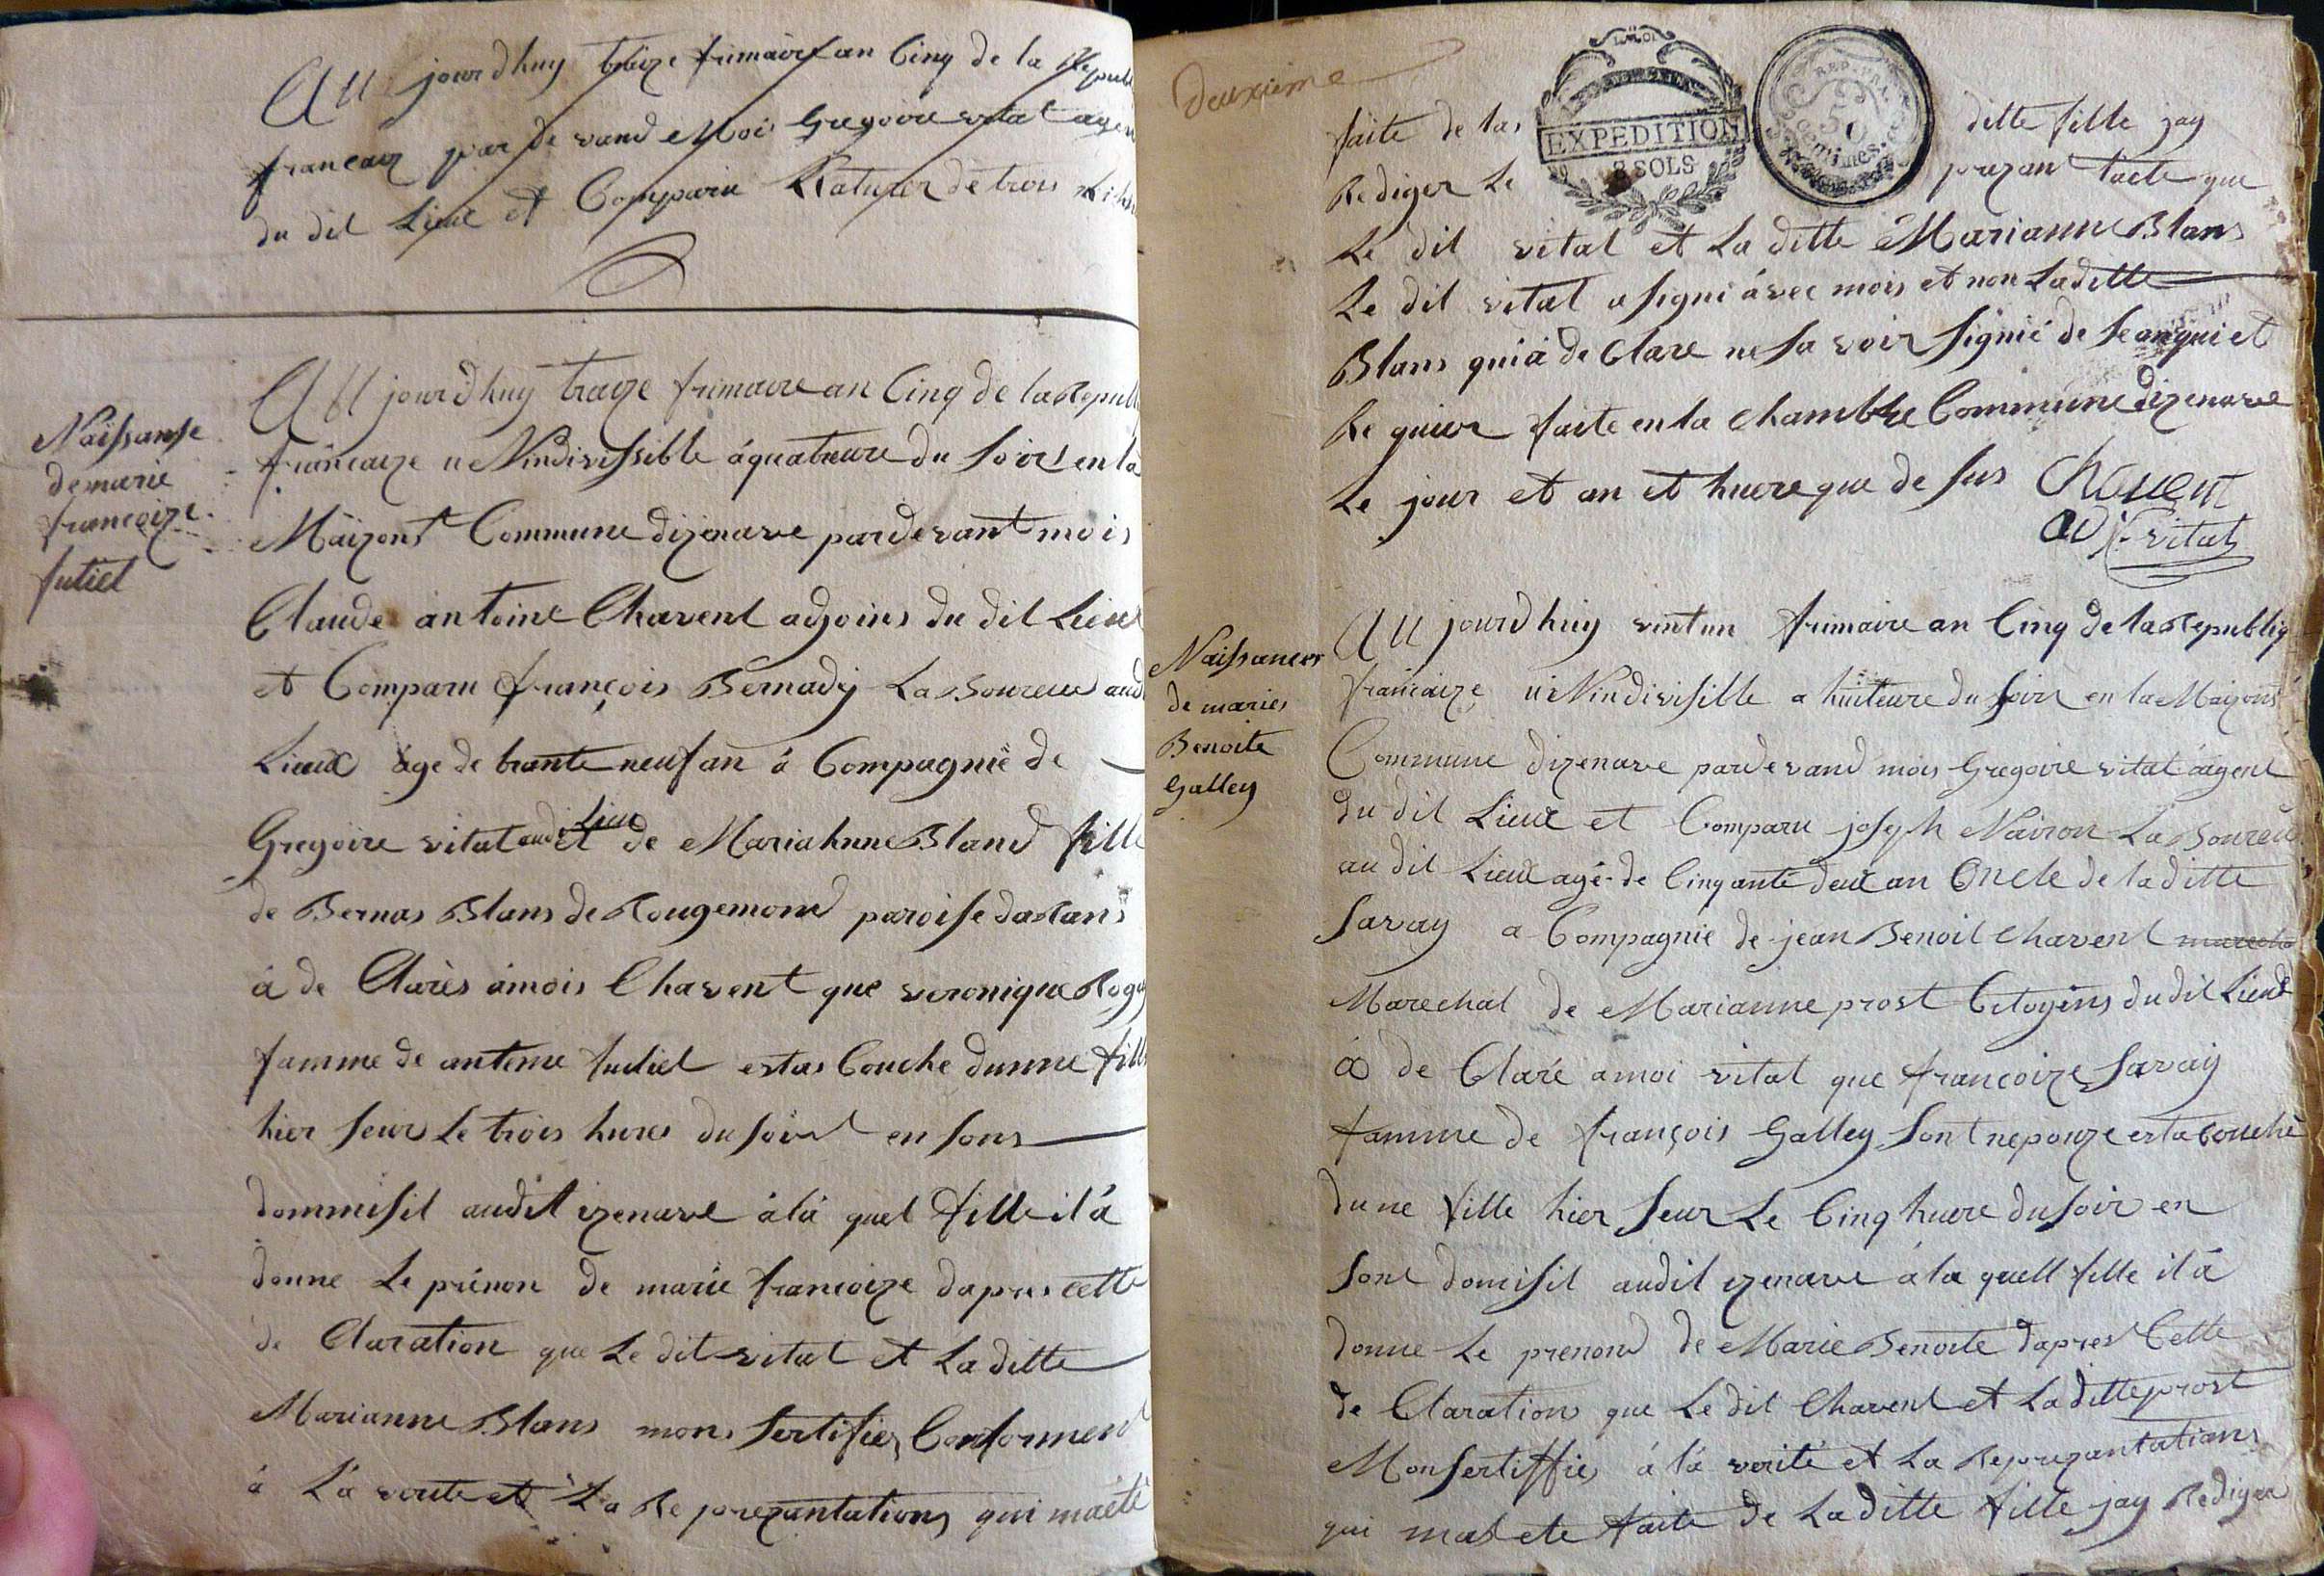 Au jourdhuy traize frimaire an Cinq de la Repub
francaiz par de vand Moi Gregoire vital agen
du dit Lieux et Comparu
Naissansse
de marie
francoize
futiel
Au jourdhuy traize frimaire an Cinq de la Republi
francaize u Nindivissible á quatreure du soir en la
Maizont Commune dizenave pardevant mois
Claude antoine Chavent adjoins du dit Lieux
et Comparu françois Bernady La Boureur aud
Lieux age de trante neuf an á Compagnié de
Gregoire vital audit Lieu et de Mariahnne Bland fille
de Bernas Blans de Rougemond paroise daRans
á de Clarès ámois Chavent que veronique Rogy
famme de anteme futiel estas Couche dunne fille
hier seur Le trois hures du soir en sons
dommisil audit izenave á lá quel fille il á
donne Le prénon de marie francoize dapres cette
de Claration que Le dit vital et La ditte
Marianne Blans mons Sertifiez Conforment
á Lá verite et La Reprezantations qui maèté
deuxieme
LA LOI
EXPEDITION
8 SOLS
REP. FRA.
50
centimes.
faite de las ditte fille jay
Rediger Le prezan tacte que
Le dit vital et La ditte Marianne Blans
Le dit vital a signi ávec mois et non Laditte
Blans quia de Clare ne sa voir signié de Seanqui et
Requier faite en la Chambre Commune dizenave
Le jour et an et huere que de sus Chavent
adj vital
Naissances
de maries
Benoite
Galley
Au jourdhuy vint un frimaire an Cinq de la Republiq
francaize u Nindivisible a huiteure du soir en la Maizons
Commune dizenave pardevand mois Gregoire vital ágent
du dit Lieux et Comparu joseph Nairon La Boureu
au dit Lieux agé de Cinqante deux an Oncle de la ditte
Savay a Compagnie de jean Benoit Chavent marecha
Marechal de Marianne prost Citoyens du dit Lieux
á de Claré amoi vital que francoize Savay
famme de françois Galley sont nepouze esta couché
dune fille hier seur Le Cinq huere du soir en
sont domisil audit izenave á la quell fille il á
donne Le prenond de Marie Benoite dapres Cette
de Claration que Le dit Chavent et La ditte prost
Mon sertiffiez á lá verité et La Reprezantations
qui mas ete faite de La ditte fille jay Rediger